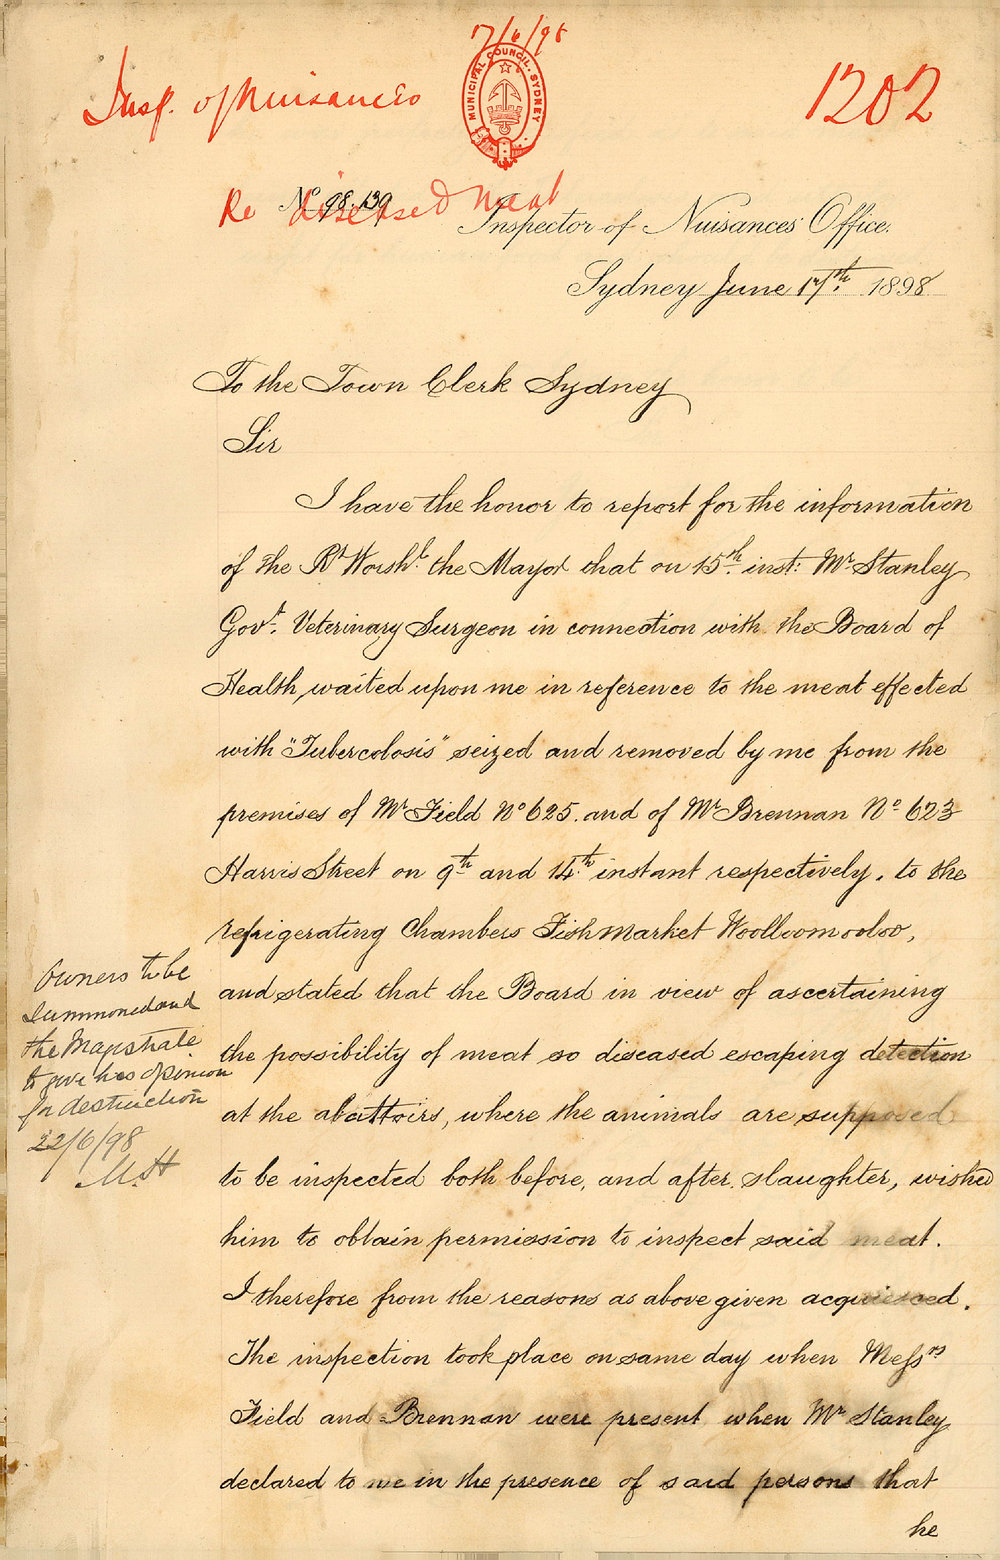 17/6/98
Insp. of Nuisances
MUNICIPAL COUNCIL. SYDNEY
1202
No 98.139
Re diseased meat
Inspector of Nuisances' Office.
Sydney June 17th. 1898
To the Town Clerk Sydney
Sir
I have the honor to report for the information
of the Rt Worshl. the Mayor that on 15th. inst: Mr Stanley
Govt. Veterinary Surgeon in connection with the Board of
Health, waited upon me in reference to the meat effected
with "Tubercolosis" seized and removed by me from the
premises of Mr Field No 625. and of Mr Brennan No 623
Harris Street on 9th and 14th instant respectively. to the
refrigerating Chambers Fish market Woolloomooloo,
and stated that the Board in view of ascertaining
the possibility of meat so diseased escaping detection
at the abattoirs, where the animals are supposed
to be inspected both before, and after slaughter, wished
him to obtain permission to inspect said meat.
I therefore from the reasons as above given acquiesced.
The inspection took place on same day when Messrs
Field and Brennan were present when Mr Stanley
declared to me in the presence of said persons that
he
Owners to be
Summoned and
the Magistrate
to give his opinion
for destruction
22/6/98
M.H